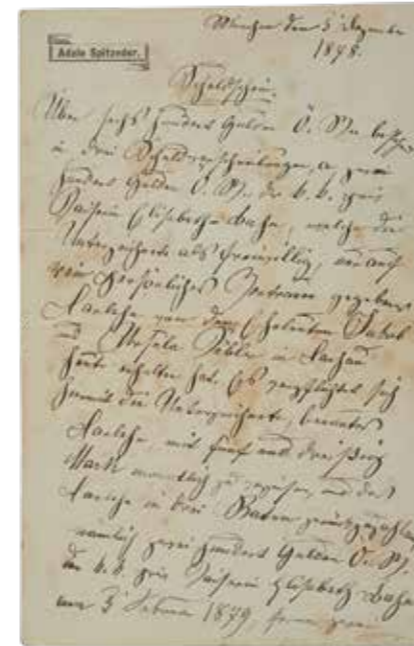 München den 3. Dezember
1878.
Adele Spitzeder.
Schuldschein.
Über sechs hundert Gulden Ö. W.
in drei Schuldverschreibungen, a zwei
hundert Gulden Ö. W. der k. k. priv.
Kaiserin Elisabeth-Bahn, welche die
Unterzeichnete als freiwillig, nur auf
rein persönliches Vertrauen gegebenes
Darlehe von den Eheleuten Jakob
und Ursula in Dachau
heute erhalten hat. Es verpflichtet sich
hiermit die Unterzeichnete, benanntes
Darlehe, mit fünf und dreißig
Mark monatlich zu verzinsen, und das
Darlehe in drei Raten zurückzuzahlen
nämlich zwei hundert Gulden Ö. W.
der k. k. priv. Kaiserin Elisabeth-Bahn
am 3. Februar 1879, ferner zwei